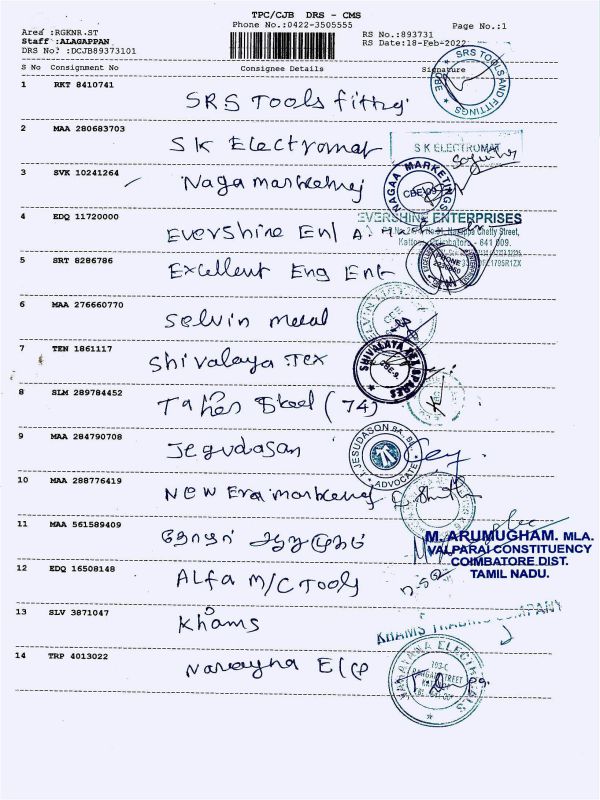 TPC/CJB DRS - CMS
Phone No.:0422-3505555
Page No.:1
Area :RGKNR.ST
RS No.:893731
Staff :ALAGAPPAN
RS Date:18-Feb-2022
DRS No! :DCJB89373101
S No Consignment No Consignee Details Signature
1 RKT 8410741 SRS Tools fitting
SRS TOOLS AND FITTINGS CBE
2 MAA 280683703 SK Electromat
S K ELECTROMAT
3 SVK 10241264 Naga marketing
NAGAA MARKETINGS CBE-09
4 EDQ 11720000 Evershine Ent
EVERSHINE ENTERPRISES
Chetty Street,
Coimbatore - 641 009.
5 SRT 8286786 Excellent Eng Ent
PHONE
6 MAA 276660770 Selvin metal
SELVIN
CBE
7 TEN 1861117 Shivalaya Tex
SHIVALAYA TEX SPARES
CBE-9.
8 SLM 289784452 Steel (74)
9 MAA 284790708 Jegudasan
JESUDASON BA., BL
ADVOCATE
10 MAA 288776419 New Era marketing
11 MAA 561589409 தோழர் ஆறுமுகம்
M. ARUMUGHAM. MLA.
VALPARAI CONSTITUENCY
COIMBATORE DIST.
TAMIL NADU.
12 EDQ 16508148 Alfa M/C Tools
13 SLV 3871047 Khams
KHAMS TRADING COMPANY
14 TRP 4013022 Narayna Ele
NARAYANA ELECTRICALS
193-C
RANGAI STREET